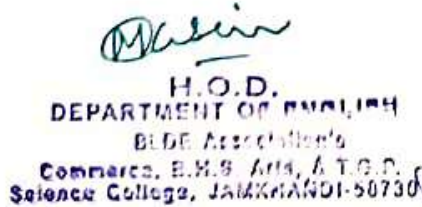 H.O.D.
DEPARTMENT OF ENGLISH
BLDE Association's
Commerce, B.H.S. Arts, & T.G.P.
Science College, JAMKHANDI-58730